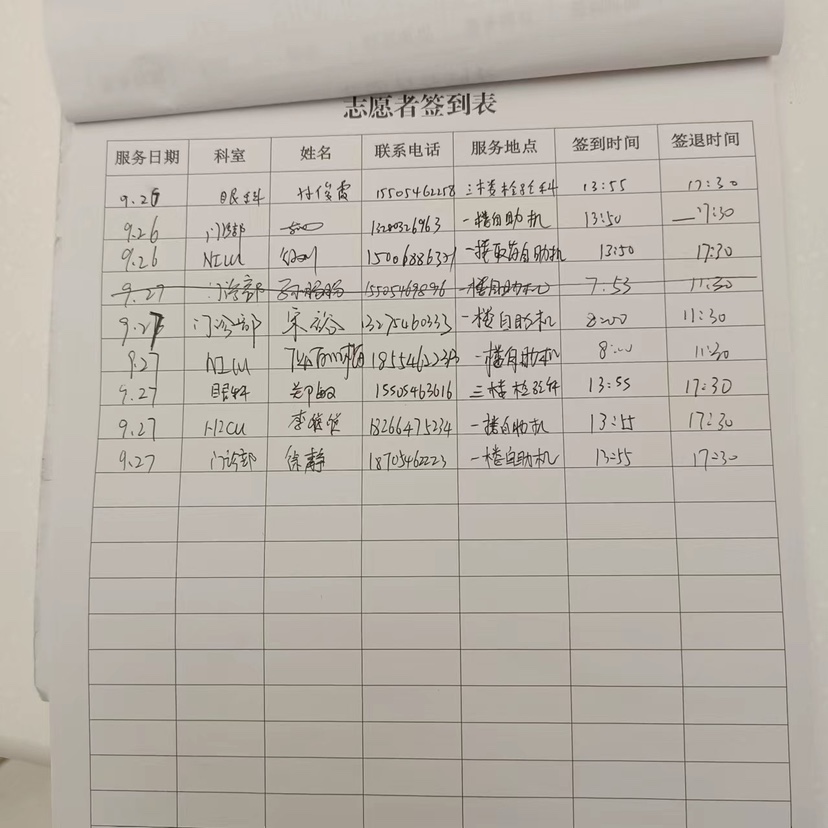 志愿者签到表
服务日期 科室 姓名 联系电话 服务地点 签到时间 签退时间
9.26 眼科 付俊霞 15505462258 三楼检验科 13:55 17:30
9.26 门诊部 一楼自助机 13:50 17:30
9.26 NICU 一楼取药自助机 13:50 17:30
9.27 门诊部 一楼自助机 7:53 11:30
9.27 门诊部 宋裕 13275460333 一楼自助机 8:00 11:30
9.27 NICU 一楼自助机 8:00 11:30
9.27 眼科 郑敏 15505463616 三楼检验科 13:55 17:30
9.27 18266475234 一楼自助机 13:55 17:30
9.27 门诊部 徐静 18705462223 一楼自助机 13:55 17:30